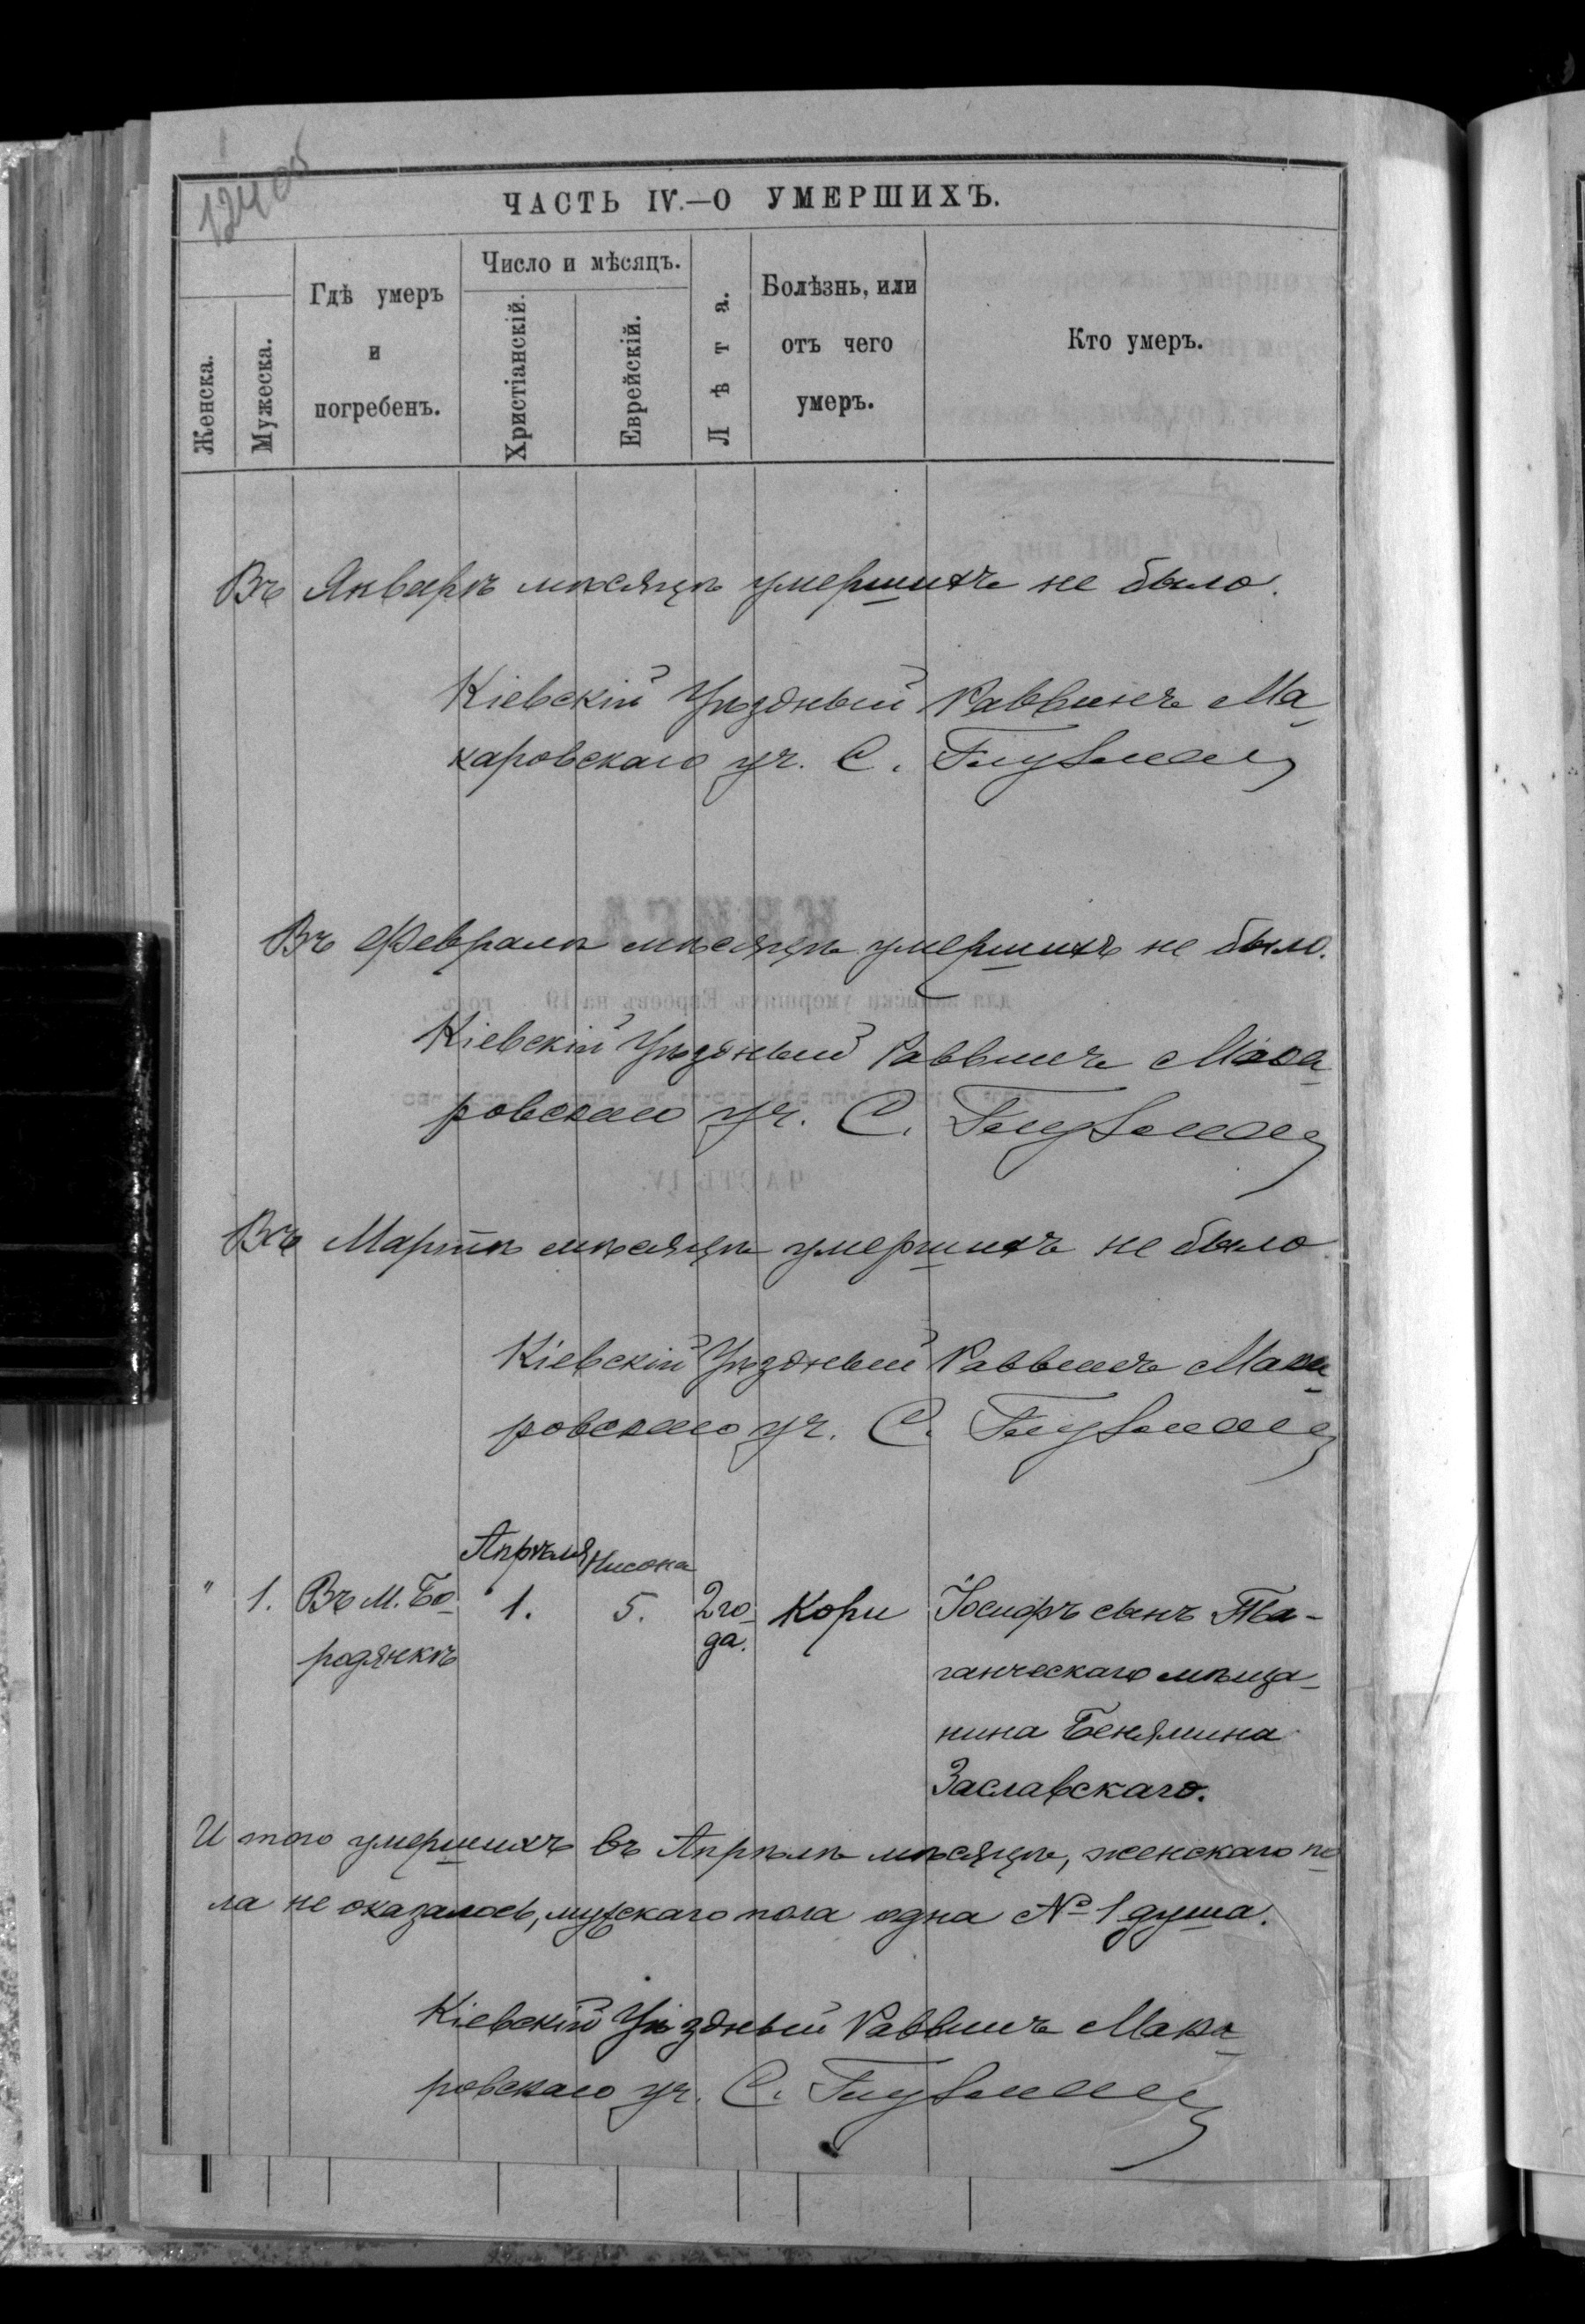 124 об
ЧАСТЬ IV.—О УМЕРШИХЪ.
Женска.
Мужеска.
Гдѣ умеръ
и
погребенъ.
Число и мѣсяцъ.
Христіанскій.
Еврейскій.
Лѣта.
Болѣзнь, или
отъ чего
умеръ.
Кто умеръ.
Въ Январѣ мѣсяцѣ умершихъ не было.
Кіевскій Уѣздный Раввинъ Ма-
каровскаго уч. С.
Въ Февралѣ мѣсяцѣ умершихъ не было.
Кіевскій Уѣздный Раввинъ Мака-
ровскаго уч. С.
Въ Мартѣ мѣсяцѣ умершихъ не было
Кіевскій Уѣздный Раввинъ Мака-
ровскаго уч. С.
Апрѣля Нисона
" 1. Въ М. Бо- 1. 5. 2 го- Кори Іосифъ сынъ Та-
родянкѣ да. ганческаго мѣща-
нина Бенямина
Заславскаго.
И того умершихъ въ Апрѣлѣ мѣсяцѣ, женскаго по-
ла не оказалось, мужскаго пола одна № 1 душа.
Кіевскій Уѣздный Раввинъ Мака-
ровскаго уч. С.